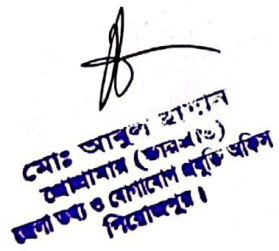 মোঃ আবুল হাসান
প্রোগ্রামার (ভারপ্রাপ্ত)
জেলা তথ্য ও যোগাযোগ প্রযুক্তি অফিস
পিরোজপুর।